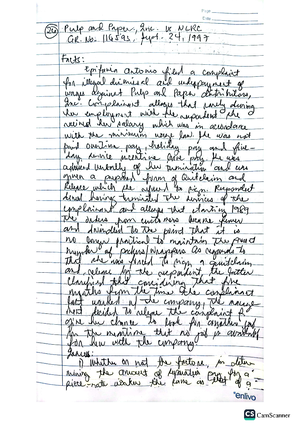 26 Pulp and Paper, Inc. vs NLRC
GR. No. 116593, Sept. 24, 1997
Facts:
Epifania Antonio filed a complaint
for illegal dismissal and underpayment of
wages against Pulp and Paper Distributors,
Inc. Complainant alleges that early during
her employment with the respondent she
received her salary which was in accordance
with the minimum wage law. She was not
paid overtime pay, holiday pay and five-
day service incentive leave pay. She was
advised verbally of her termination and was
given a prepared form of Quitclaim and
Release which she refused to sign. Respondent
denied having terminated the services of the
complainant and alleges that starting 1989
the orders from customers became fewer
and dwindled to the point that it is
no longer practical to maintain the present
number of packers/wrappers. As regards to
that she was forced to sign a quitclaim
and release by the respondent, the latter
clarified that considering that five
months from the time the complainant
last worked w/ the company, the management
decided to release the complainant to
give her chance to look for another job
in the meantime that no job is available
for her with the company.
Issues:
1) Whether or not the factors, in deter-
mining the amount of separation pay for a
piece-rate worker the same as that of a
enlivo
CS CamScanner